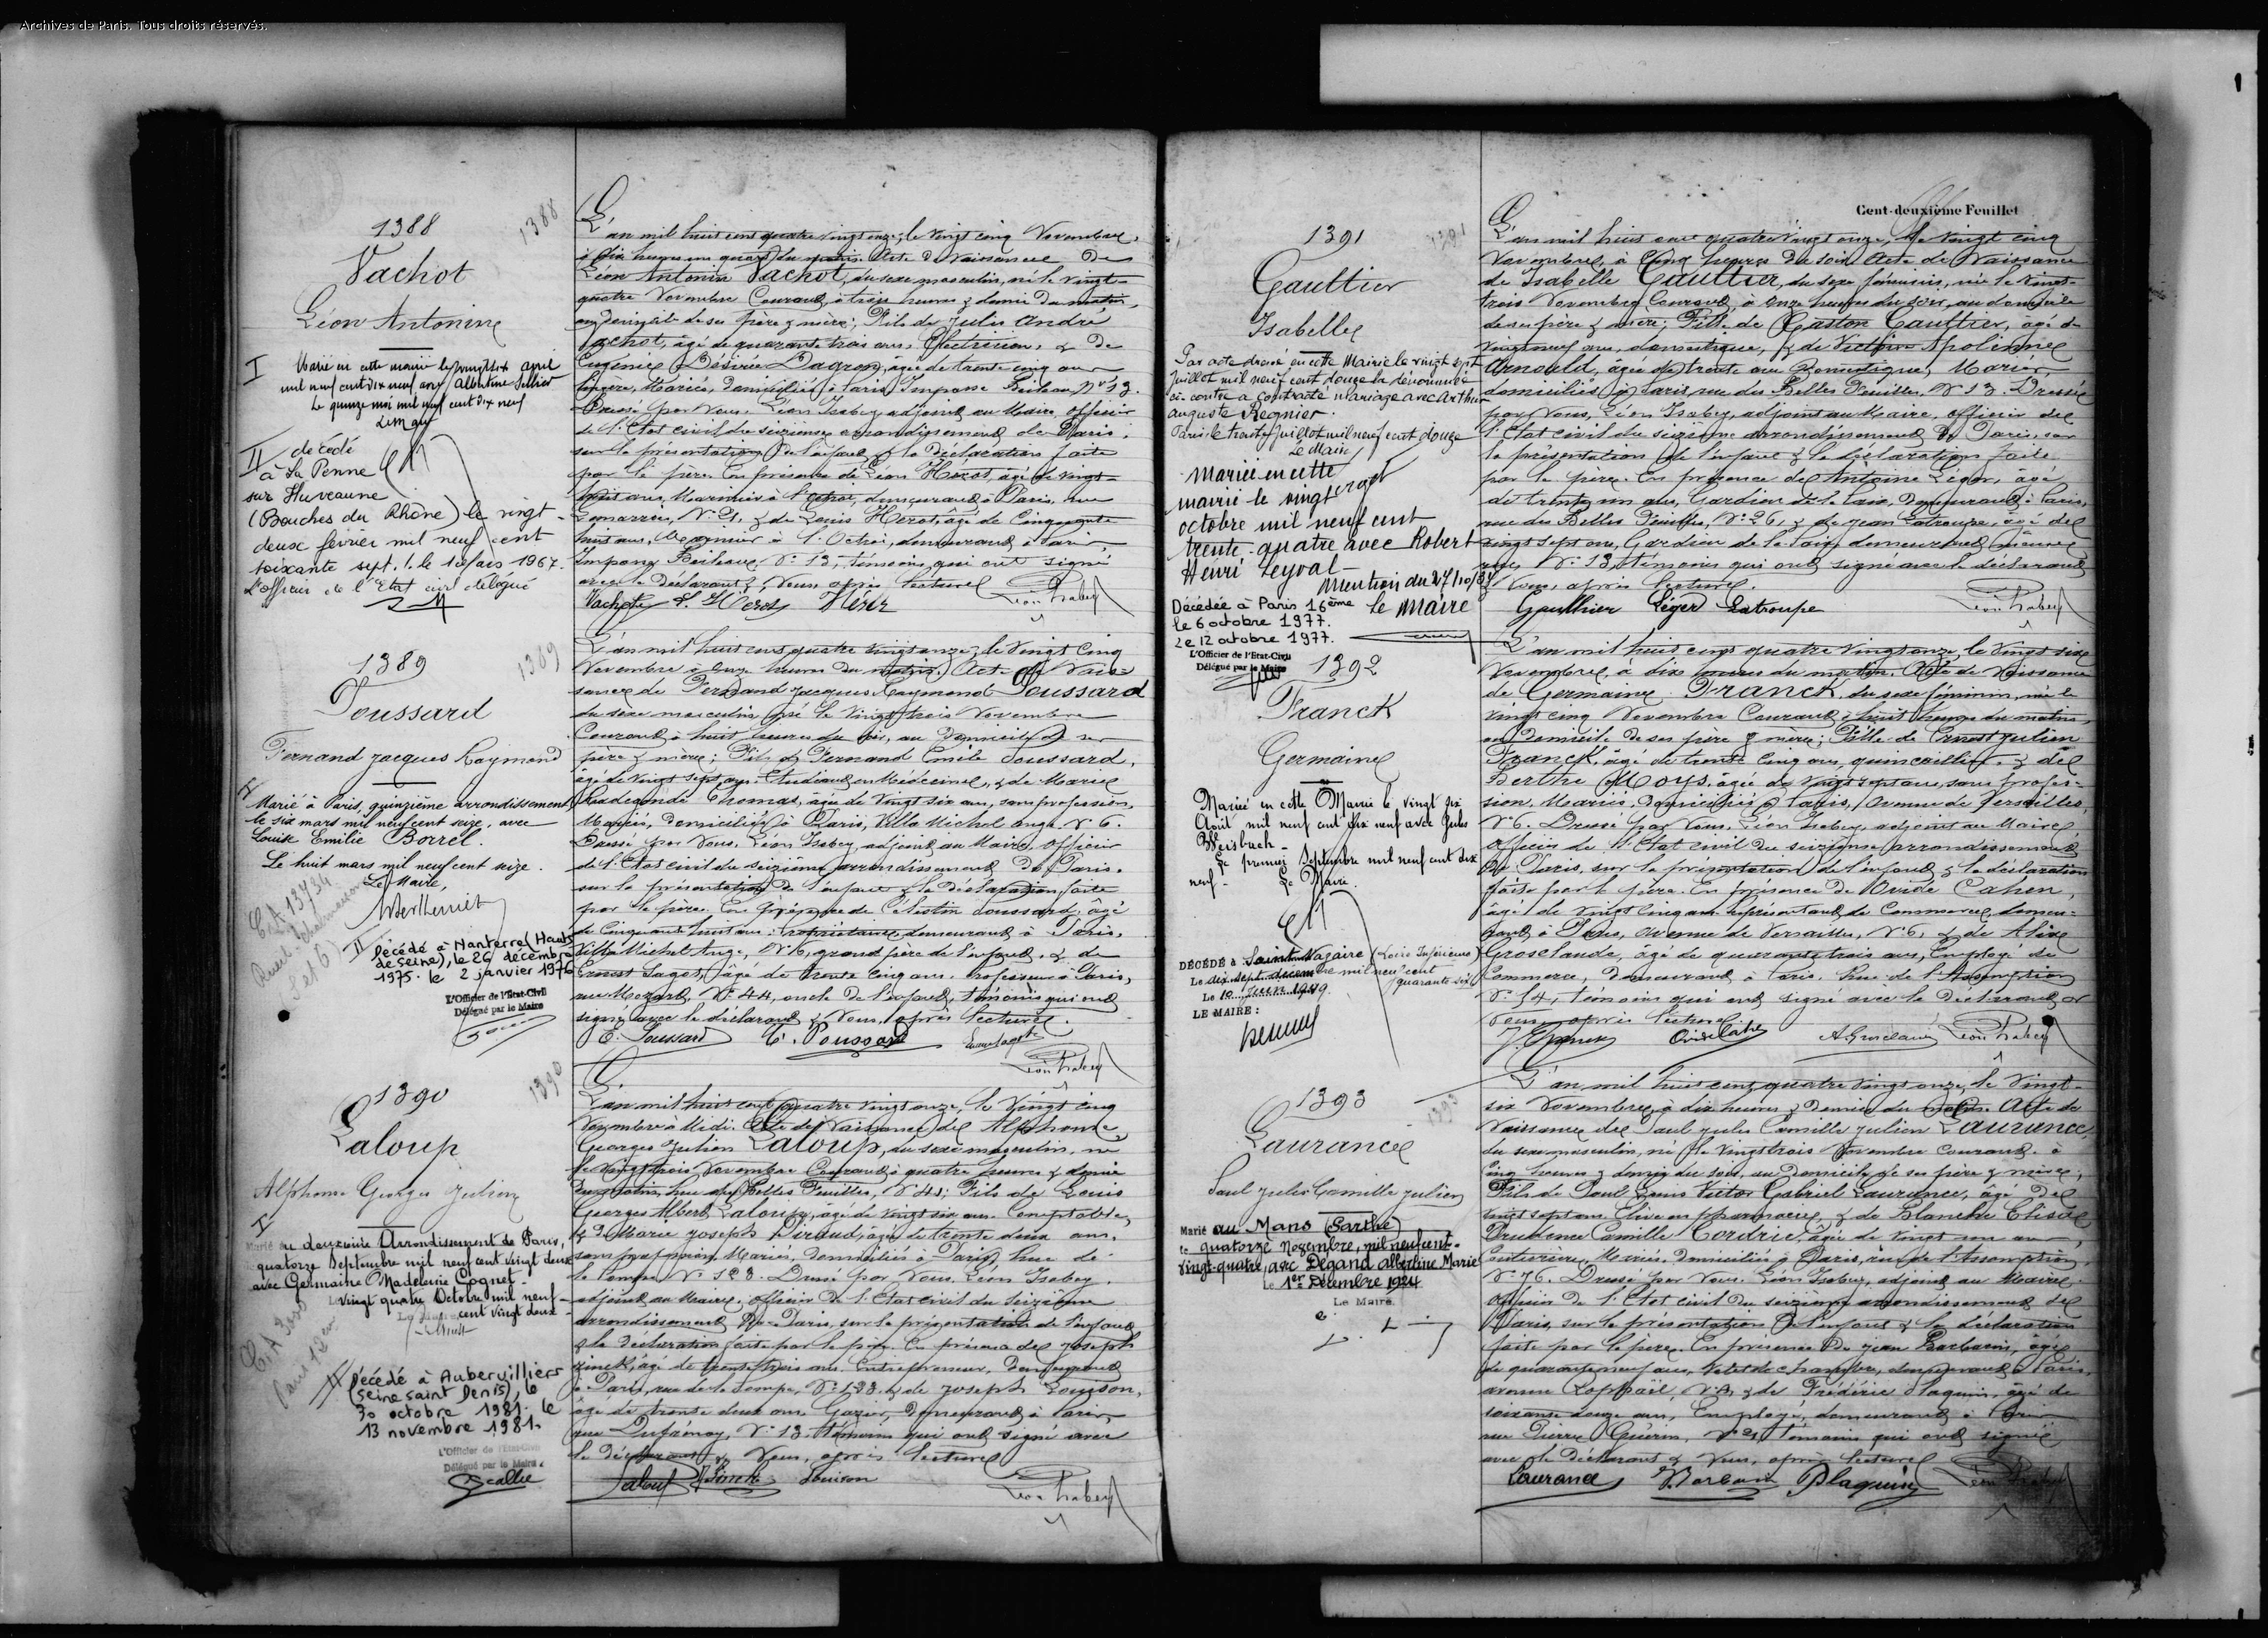 Archives de Paris. Tous droits réservés.
1388
1388
Vachot
Léon Antonin
I Marié en cette mairie le vingt six avril
mil neuf cent dix neuf avec Albertine Sellier
Le quinze mai mil neuf cent dix neuf
II décédé
à La Penne
sur Huveaune
(Bouches du Rhône) le vingt
deux février mil neuf cent
soixante sept. le 1er Mars 1967.
L'officier de l'Etat civil délégué
L'an mil huit cent quatre vingt onze, le vingt cinq Novembre,
à dix heures un quart du matin. Acte de Naissance de
Léon Antonin Vachot, du sexe masculin, né le vingt-
quatre Novembre Courant, à trois heures & demie du matin,
au domicile de ses père & mère; Fils de Jules André
Vachot, âgé de quarante trois ans, Electricien, & de
Eugénie Désirée Dagron, âgée de trente cinq ans
Lingère, Mariés, domiciliés à Paris, Impasse Boileau, No 13.
Dressé par Nous, Léon Isabey, adjoint au Maire, officier
de l'Etat civil du seizième arrondissement de Paris,
sur la présentation de l'enfant & la Déclaration faite
par le père. En présence de Léon Hérot, âgé de vingt-
huit ans, Marinier à l'octroi, demeurant à Paris, rue
Lemarrois, No 21, & de Louis Hérot, âgé de Cinquante
huit ans, Marinier à l'Octroi, demeurant à Paris,
Impasse Boileau, No 13, témoins qui ont signé
avec le Déclarant & Nous, après lecture.
Vachot L. Hérot Hérot Léon Isabey
1389
1389
Toussard
Fernand Jacques Raymond
I
Marié à Paris, quinzième arrondissement
le six mars mil neuf cent seize, avec
Louise Emilie Borrel.
Le huit mars mil neuf cent seize.
Le Maire,
C.A 13734
II Décédé à Nanterre (Hauts
de Seine), le 26 décembre
1975. le 2 janvier 1976
L'Officier de l'Etat-Civil
Délégué par le Maire
L'an mil huit cent quatre vingt onze, le vingt cinq
Novembre à onze heures du matin. Acte de Nais-
sance de Fernand Jacques Raymond Toussard
du sexe masculin, né le vingt trois Novembre
Courant à huit heures du soir, au domicile de ses
père & mère; Fils de Fernand Emile Toussard,
âgé de vingt sept ans, Etudiant en Médecine, & de Marie
Radegonde Thomas, âgée de vingt six ans, sans profession,
Mariés, domiciliés à Paris, Villa Michel Ange No 6.
Dressé par Nous, Léon Isabey, adjoint au Maire, officier
de l'Etat civil du seizième arrondissement de Paris,
sur la présentation de l'enfant & la déclaration faite
par le père. En présence de Célestin Toussard, âgé
de Cinquante huit ans, propriétaire, demeurant à Paris,
Villa Michel Ange, No 6, grand père de l'enfant, & de
Ernest Sagot, âgé de trente cinq ans, Professeur à Paris,
rue Mozart, No 44, oncle de l'enfant, témoins qui ont
signé avec le déclarant & Nous, après lecture.
E. Toussard C. Toussard Léon Isabey
1390
1390
Laloup
Alphonse Georges Julien
I
Marié au douzième Arrondissement de Paris,
quatorze Septembre mil neuf cent vingt deux
avec Germaine Madeleine Cognet.
Le vingt quatre Octobre mil neuf
cent vingt deux
II Décédé à Aubervilliers
(Seine Saint Denis), le
30 octobre 1981. le
13 novembre 1981.
L'Officier de l'Etat-Civil
Délégué par le Maire
L'an mil huit cent quatre vingt onze, le vingt cinq
Novembre à Midi. Acte de Naissance de Alphonse
Georges Julien Laloup, du sexe masculin, né
le vingt trois Novembre Courant, à quatre heures & demie
du matin, rue des Belles Feuilles, No 41; Fils de Louis
Georges Albert Laloup, âgé de vingt six ans, Comptable,
& de Marie Joseph Piraud, âgée de trente deux ans,
sans profession, Mariés, domiciliés à Paris, rue de
la Pompe No 123. Dressé par Nous, Léon Isabey,
adjoint au Maire, officier de l'Etat civil du seizième
arrondissement de Paris, sur la présentation de l'enfant
& la déclaration faite par le père. En présence de Joseph
âgé de trente trois ans, Entrepreneur, demeurant
à Paris, rue de la Pompe, No 123, & de Joseph Louison,
âgé de trente deux ans, Gazier, demeurant à Paris,
rue Dufrénoy, No 13, témoins qui ont signé avec
le Déclarant & Nous, après lecture.
Laloup Louison Léon Isabey
Cent-deuxième Feuillet
1391
1391
Gaultier
Isabelle
Par acte dressé en cette Mairie le vingt sept
Juillet mil neuf cent douze la dénommée
ci-contre a contracté mariage avec Arthur
Auguste Regnier.
Paris, le trente Juillet mil neuf cent douze
Le Maire
Mariée en cette
mairie le vingt sept
octobre mil neuf cent
trente-quatre avec Robert
Henri Leyval
Mention du 27/10/34
Le Maire
Décédée à Paris 16ème
le 6 octobre 1977.
Le 12 octobre 1977.
L'Officier de l'Etat-Civil
Délégué par le Maire
L'an mil huit cent quatre vingt onze, le vingt cinq
Novembre, à Cinq heures du soir. Acte de Naissance
de Isabelle Gaultier, du sexe féminin, née le vingt-
trois Novembre Courant, à onze heures du soir, au domicile
de ses père & mère; Fille de Gaston Gaultier, âgé de
vingt neuf ans, domestique, & de Victoire Apolinne
Arnould, âgée de trente ans Domestique, Mariés,
domiciliés à Paris, rue des Belles Feuilles, No 13. Dressé
par Nous, Léon Isabey, adjoint au Maire, officier de
l'Etat civil du seizième arrondissement de Paris, sur
la présentation de l'enfant & la déclaration faite
par le père. En présence de Antoine Léger, âgé
de trente un ans, Gardien de la Paix, demeurant à Paris,
rue des Belles Feuilles, No 26, & de Jean Latroupe, âgé de
vingt sept ans, Gardien de la Paix, demeurant même
rue, No 13, témoins qui ont signé avec le déclarant
& Nous, après lecture.
Gaulthier Léger Latroupe Léon Isabey
1392
Franck
Germaine
Mariée en cette Mairie le vingt six
Août mil neuf cent dix neuf avec Jules
Weisbuch.
Le premier Septembre mil neuf cent dix
neuf.
Le Maire.
DÉCÉDÉ à Saint Nazaire (Loire Inférieure)
Le dix sept décembre mil neuf cent
quarante six
Le 10 Juin 1949.
LE MAIRE:
L'an mil huit cent quatre vingt onze, le vingt six
Novembre, à dix heures du matin. Acte de Naissance
de Germaine Franck, du sexe féminin, née le
vingt cinq Novembre Courant, à huit heures du matin,
au Domicile de ses père & mère; Fille de Ernest Julien
Franck, âgé de trente cinq ans, quincaillier, & de
Berthe Moys, âgée de vingt sept ans, sans profes-
sion, Mariés, domiciliés à Paris, Avenue de Versailles,
No 6. Dressé par Nous, Léon Isabey, adjoint au Maire,
officier de l'Etat civil du seizième arrondissement
de Paris, sur la présentation de l'enfant & la déclaration
faite par le père. En présence de Ovide Cahen,
âgé de vingt cinq ans, Représentant de Commerce, demeu-
rant à Paris, Avenue de Versailles, No 6, & de Alixe
Grosclaude, âgé de quarante trois ans, Employé de
Commerce, demeurant à Paris, Rue de l'Assomption
No 14, témoins qui ont signé avec le Déclarant &
Nous, après lecture.
Léon Isabey
1393
1393
Laurance
Paul Jules Camille Julien
Marié au Mans (Sarthe)
le quatorze Novembre, mil neuf cent-
vingt-quatre, avec Degand Albertine Marie
Le 1er Décembre 1924
Le Maire
L'an mil huit cent quatre vingt onze, le vingt-
six Novembre, à dix heures & demie du matin. Acte de
Naissance de Paul Jules Camille Julien Laurance,
du sexe masculin, né le vingt trois Novembre courant, à
Cinq heures & demie du soir, au domicile de ses père & mère;
Fils de Paul Louis Victor Gabriel Laurance, âgé de
vingt sept ans, Elève en pharmacie, & de Blanche Elisa
Prudence Camille Cordrie, âgée de vingt un ans,
Couturière, Mariés, Domiciliés à Paris, rue de l'Assomption,
No 76. Dressé par Nous, Léon Isabey, adjoint au Maire,
officier de l'Etat civil du seizième arrondissement de
Paris, sur la présentation de l'enfant & la déclaration
faite par le père. En présence de Jean Barbarin, âgé
de quarante neuf ans, Valet de chambre, demeurant à Paris,
avenue Raphaël, & de Frédéric Plaquin, âgé de
soixante douze ans, Employé, demeurant à Paris
rue Pierre Guérin, témoins qui ont signé
avec le Déclarant & Nous, après lecture.
Laurance Barbarin Plaquin Léon Isabey